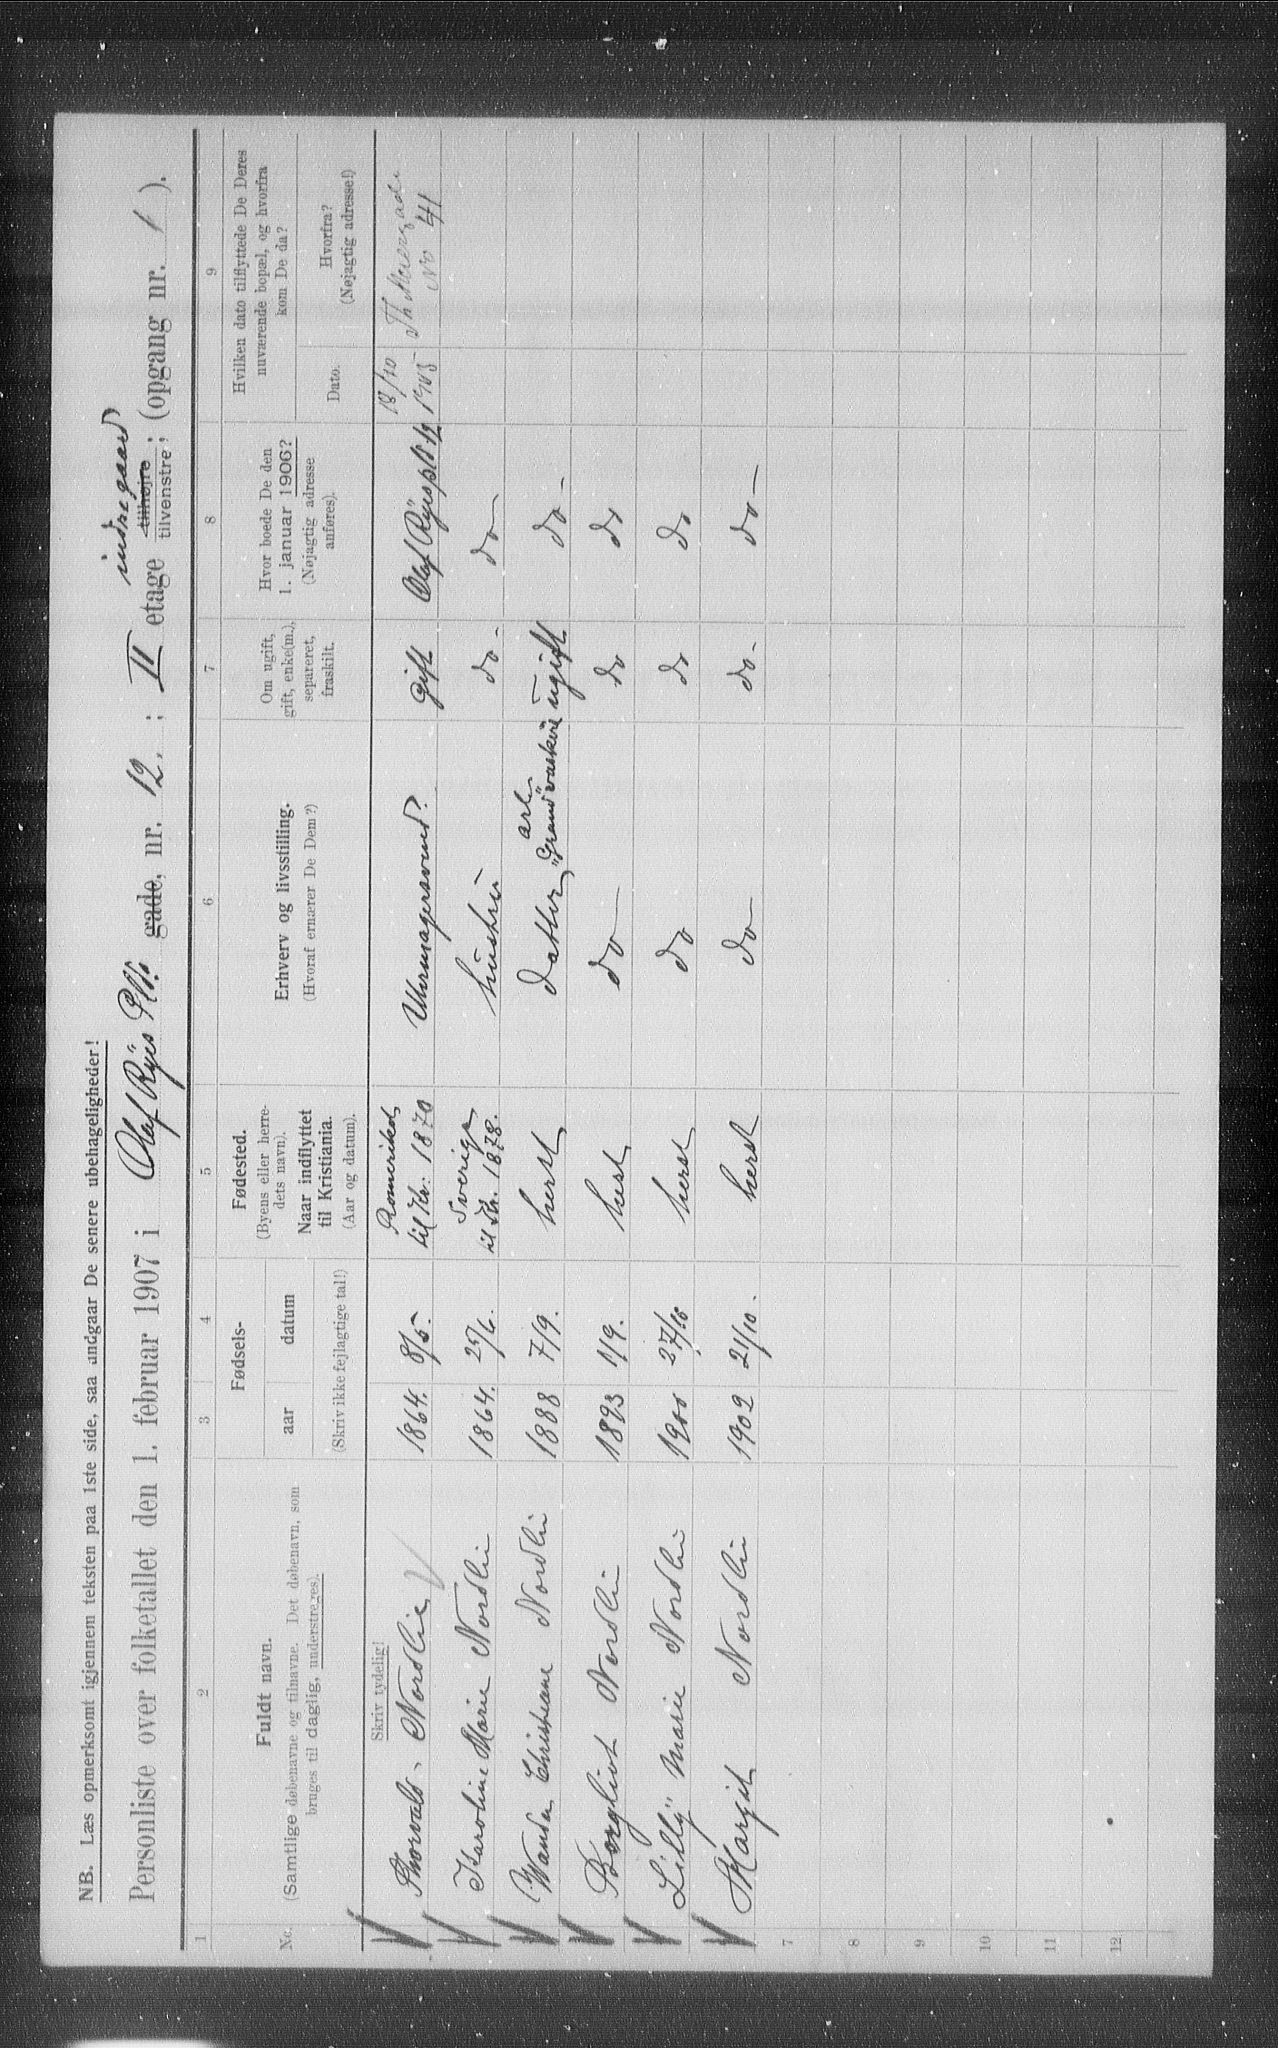 NB. Læs opmerksomt igjennem teksten paa 1ste side, saa undgaar De senere ubehageligheder!
indregaard
Personliste over folketallet den 1. februar 1907 i Olaf Ryes Pl. gade, nr. 12. ; II etage tilhøjre ; tilvenstre ; (opgang nr. 1 ).
1 2 3 4 5 6 7 8 9
No.
Fuldt navn.
(Samtlige døbenavne og tilnavne. Det døbenavn, som
bruges til daglig, understreges).
Fødsels-
aar datum
(Skriv ikke fejlagtige tal!)
Fødested.
(Byens eller herre-
dets navn).
Naar indflyttet
til Kristiania.
(Aar og datum).
Erhverv og livsstilling.
(Hvoraf ernærer De Dem?)
Om ugift,
gift, enke(m.),
separeret,
fraskilt.
Hvor boede De den
1. januar 1906?
(Nøjagtig adresse
anføres).
Hvilken dato tilflyttede De Deres
nuværende bopæl, og hvorfra
kom De da?
Dato.
Hvorfra?
(Nøjagtig adresse!)
Skriv tydelig!
Thorvald Nordlie 1864. 8/5. Romerike, til Kr: 1870 Uhrmagersvend gift Olaf Ryespl. 12 18/10 1905 Th Meiersgade No 41
Karoline Marie Nordlie 1864. 25/6. Sverige til Kr. 1878. hustru do - do -
Wanda Christiane Nordli 1888 7/9. herst datter, arb. "Grand" vaskeri ugift do -
Borgliot Nordlie 1893 1/9. herst do - do do
Lilly Marie Nordli 1900 27/10 herst do do do
Margit Nordlie 1902 21/10. herst do - do - do -
7
8
9
10
11
12